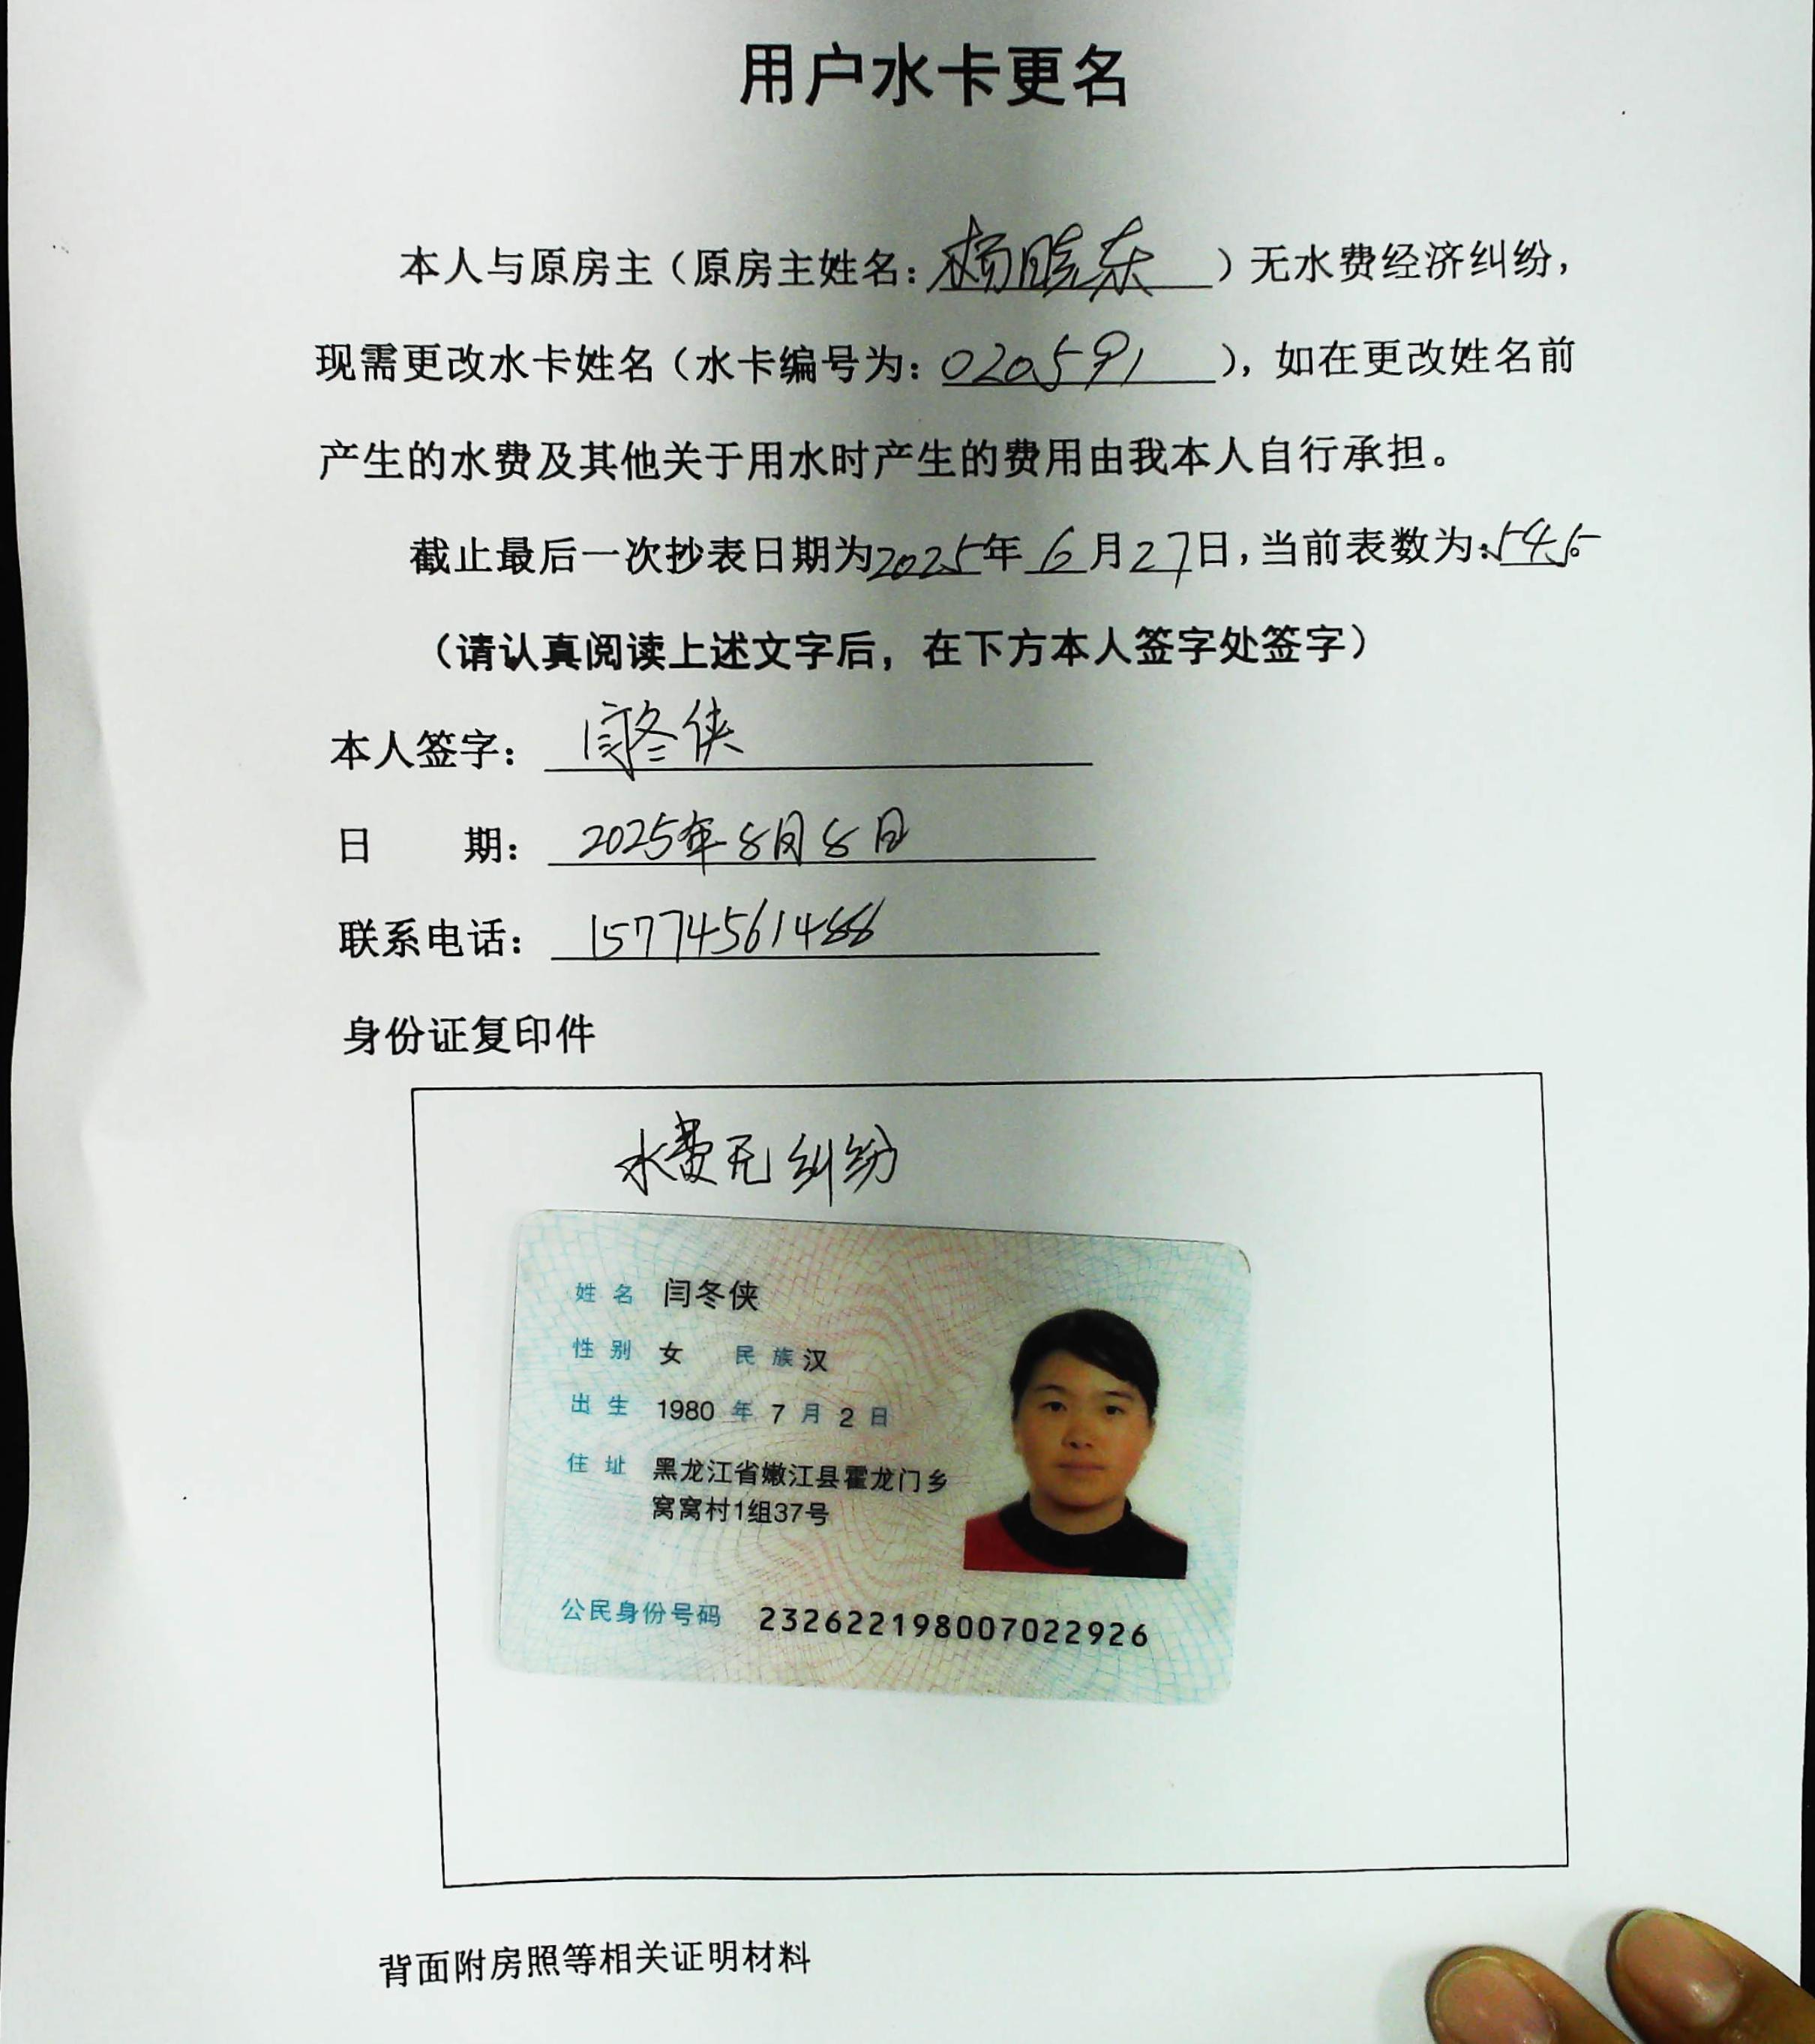 用户水卡更名
本人与原房主（原房主姓名：杨晓东）无水费经济纠纷，
现需更改水卡姓名（水卡编号为：020591），如在更改姓名前
产生的水费及其他关于用水时产生的费用由我本人自行承担。
截止最后一次抄表日期为2025年6月27日，当前表数为：545
（请认真阅读上述文字后，在下方本人签字处签字）
本人签字：闫冬侠
日期：2025年8月8日
联系电话：15774561488
身份证复印件
水费无纠纷
姓名 闫冬侠
性别 女 民族 汉
出生 1980年7月2日
住址 黑龙江省嫩江县霍龙门乡
窝窝村1组37号
公民身份号码 232622198007022926
背面附房照等相关证明材料